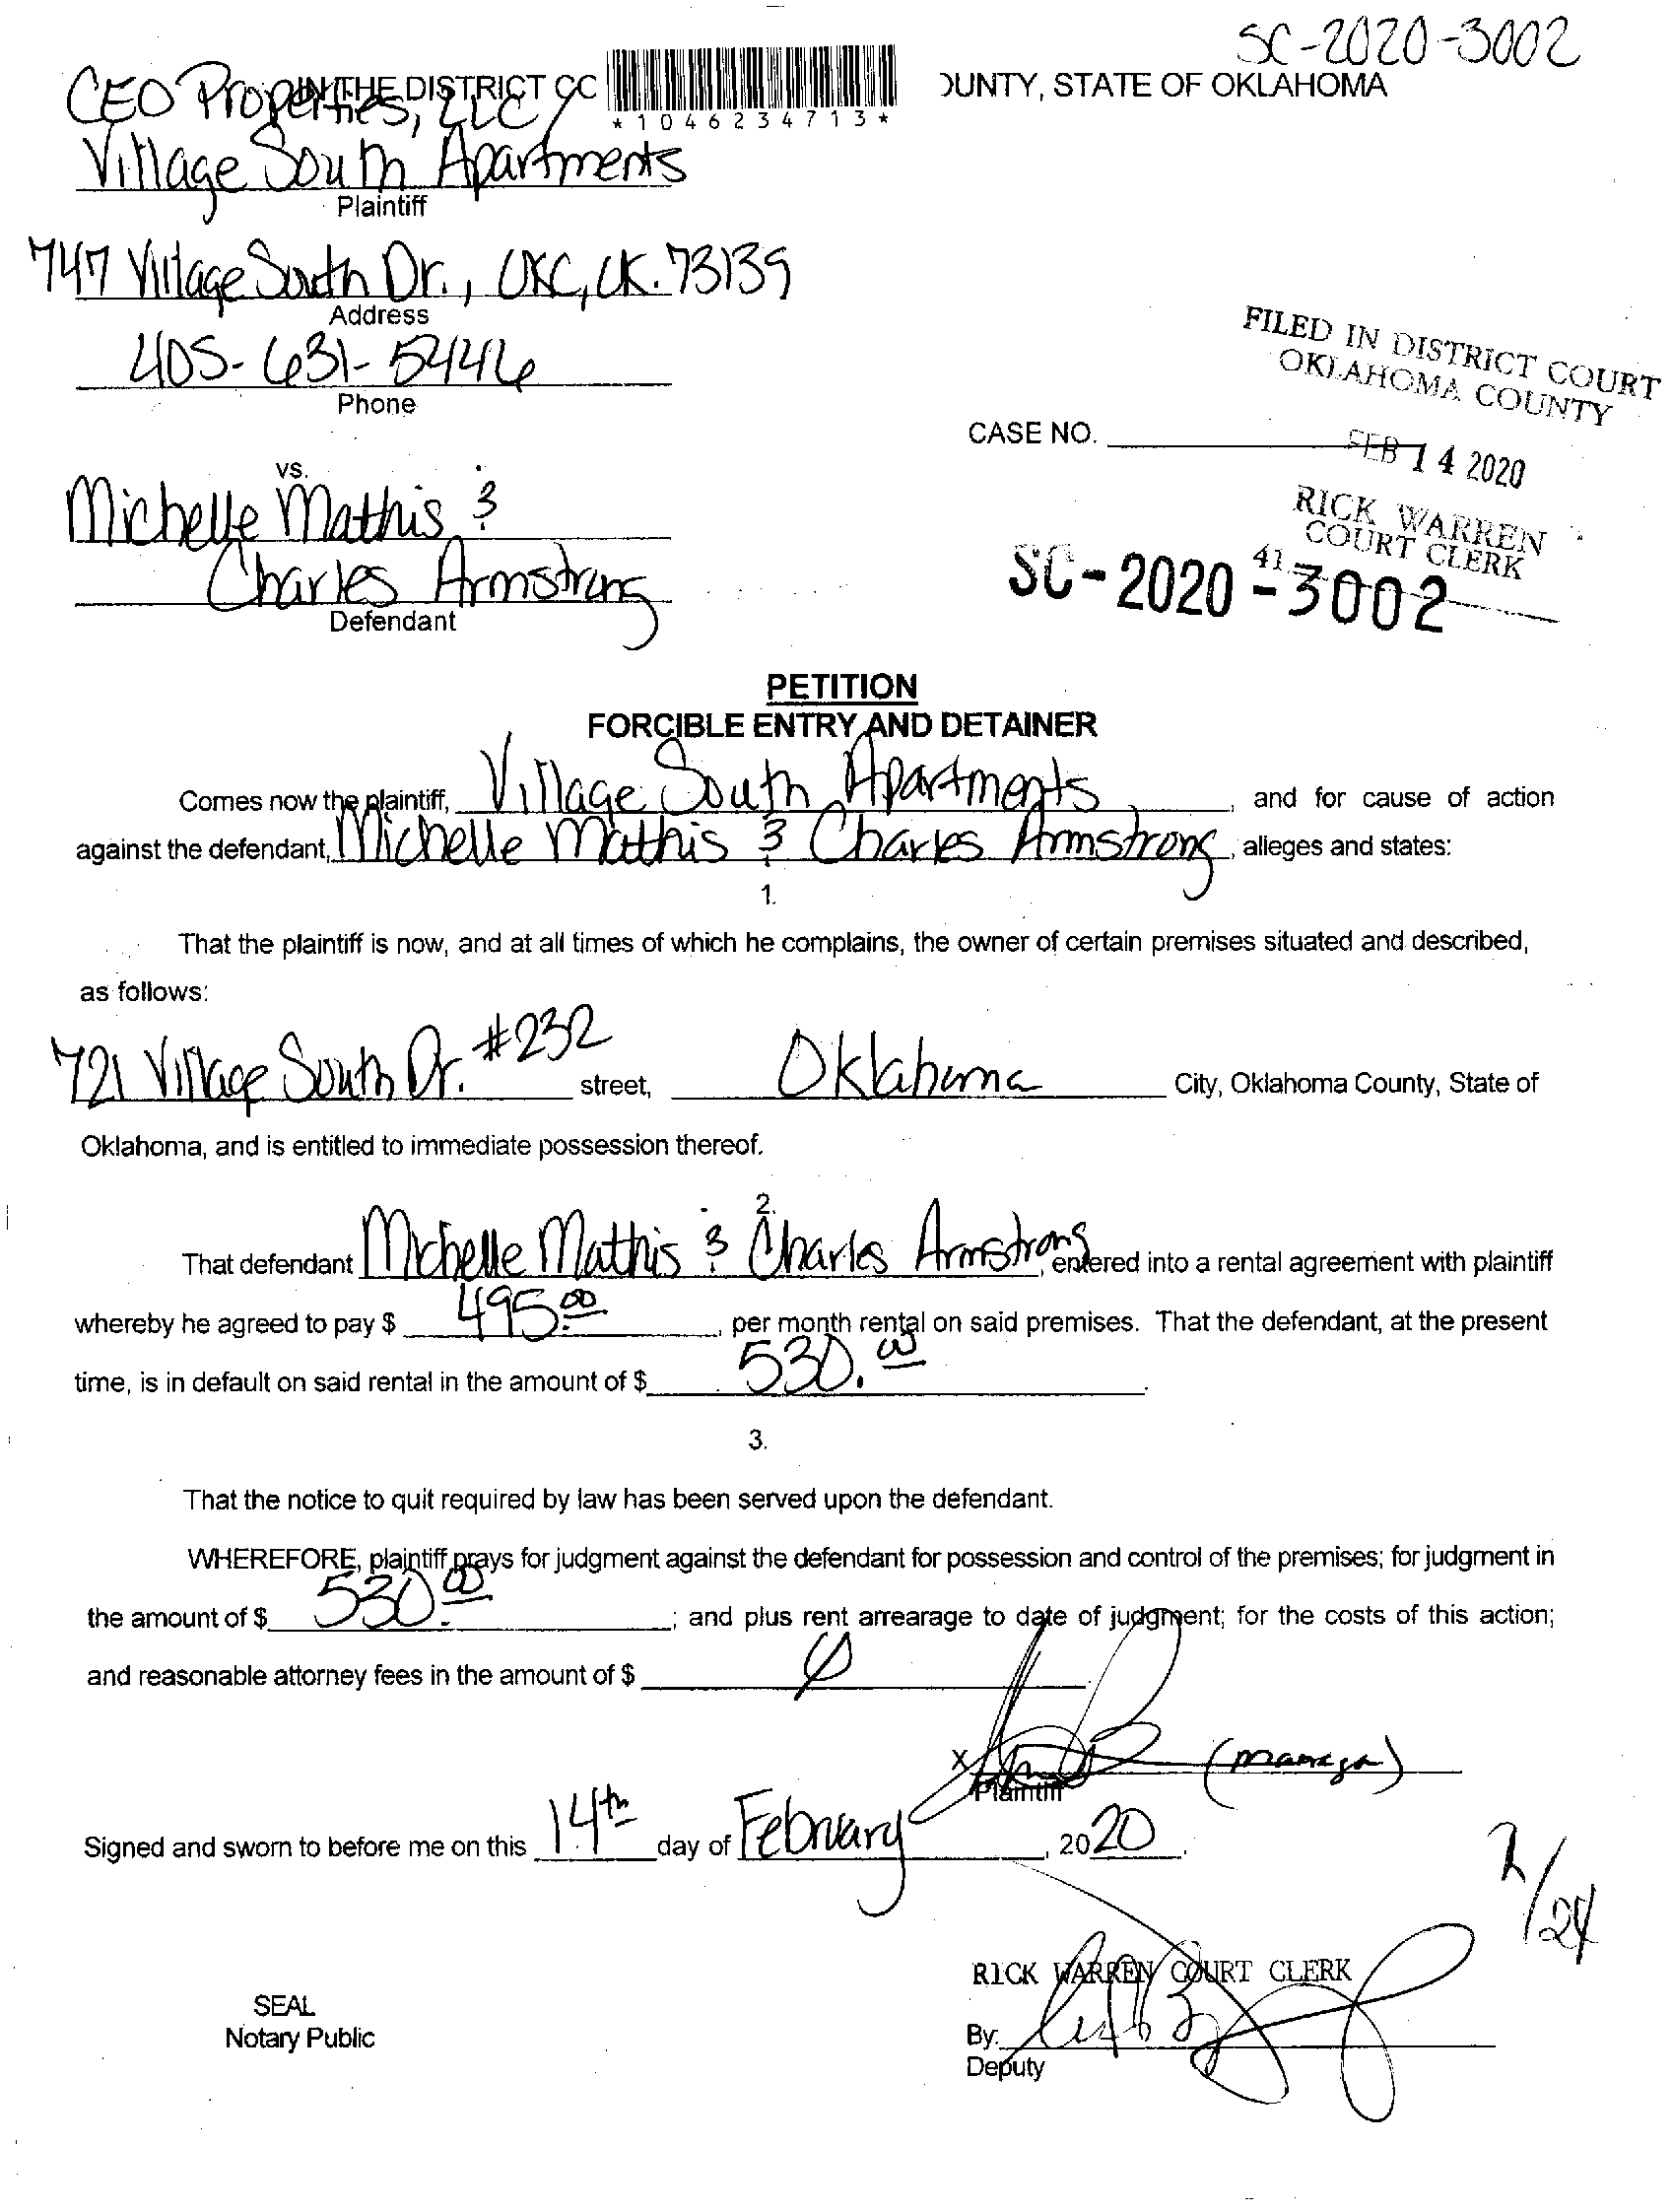 SC-2020-3002
IN THE DISTRICT CO OUNTY, STATE OF OKLAHOMA
CEO Properties, LLC /
*1046234713*
Village South Apartments
Plaintiff
747 Village South Dr., OKC, OK. 73139
Address
405-631-5446
Phone
FILED IN DISTRICT COURT
OKLAHOMA COUNTY
CASE NO.
FEB 14 2020
RICK WARREN
COURT CLERK
41
SC-2020-3002
vs.
Michelle Mathis &
Charles Armstrong
Defendant
PETITION
FORCIBLE ENTRY AND DETAINER
Comes now the plaintiff, Village South Apartments, and for cause of action
against the defendant, Michelle Mathis & Charles Armstrong, alleges and states:
1.
That the plaintiff is now, and at all times of which he complains, the owner of certain premises situated and described,
as follows:
721 Village South Dr. #232 street, Oklahoma City, Oklahoma County, State of
Oklahoma, and is entitled to immediate possession thereof.
2.
That defendant Michelle Mathis & Charles Armstrong, entered into a rental agreement with plaintiff
whereby he agreed to pay $ 495.00, per month rental on said premises. That the defendant, at the present
time, is in default on said rental in the amount of $ 530.00.
3.
That the notice to quit required by law has been served upon the defendant.
WHEREFORE, plaintiff prays for judgment against the defendant for possession and control of the premises; for judgment in
the amount of $ 530.00; and plus rent arrearage to date of judgment; for the costs of this action;
and reasonable attorney fees in the amount of $ 0
X (manager)
Plaintiff
Signed and sworn to before me on this 14th day of February, 2020.
2/24
RICK WARREN COURT CLERK
SEAL
Notary Public
By:
Deputy